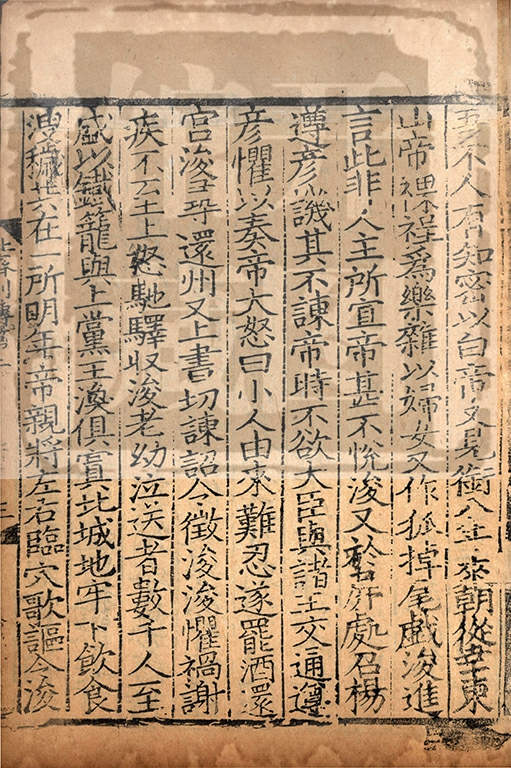 不人有知密以白帝又見銜八年來朝從幸東
山帝裸裎爲樂雜以婦女又作狐掉尾戲浚進
言此非人主所宜帝甚不悅浚又於屏處召楊
遵彦譏其不諫帝時不欲大臣與諸王交通遵
彦懼以奏帝大怒曰小人由來難忍遂罷酒還
宮浚尋還州又上書切諫詔令徵浚浚懼禍謝
疾不至上怒馳驛収浚老幼泣送者數千人至
盛以鐵籠與上黨王渙俱寘北城地牢下飲食
溲穢共在一所明年帝親將左右臨穴歌謳令浚